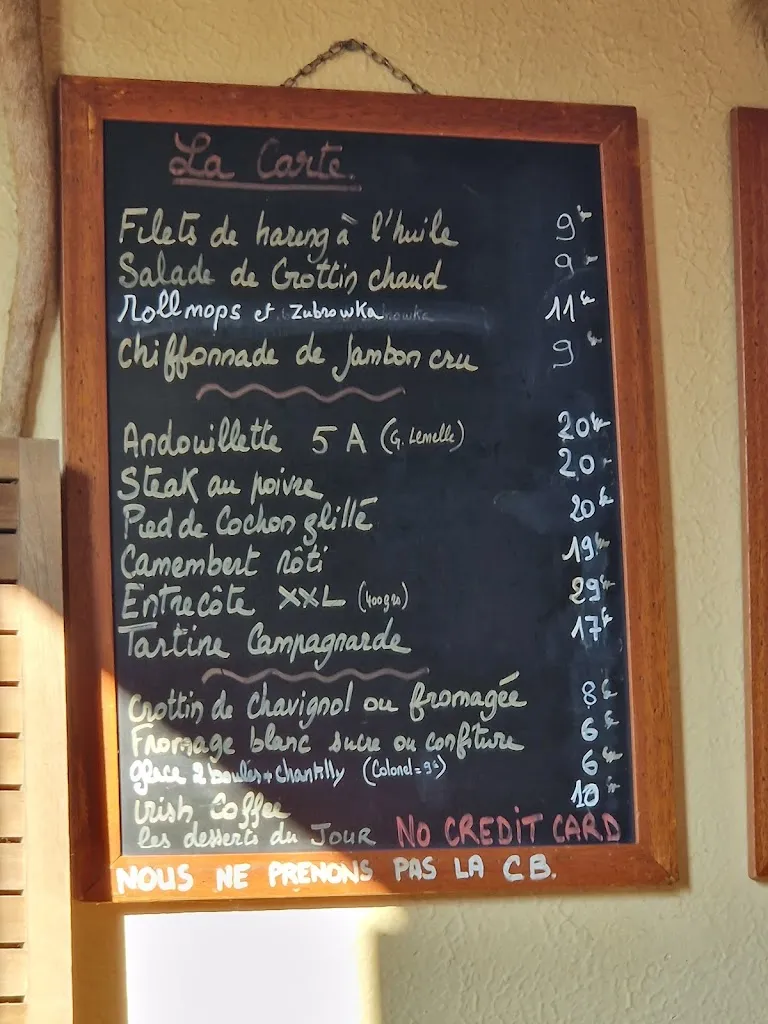 La Carte.
Filets de hareng à l'huile 9€
Salade de Crottin chaud 9€
Rollmops et Zubrowka 11€
Chiffonnade de Jambon cru 9€
Andouillette 5 A (G. Lemelle) 20€
Steak au poivre 20€
Pied de Cochon grillé 20€
Camembert rôti 19€
Entrecôte XXL (400grs) 29€
Tartine Campagnarde 17€
Crottin de Chavignol ou fromagée 8€
Fromage blanc sucre ou confiture 6€
glace 2 boules + Chantilly (Colonel = 9€) 6€
Irish Coffee 10€
Les desserts du JOUR NO CREDIT CARD
NOUS NE PRENONS PAS LA CB.